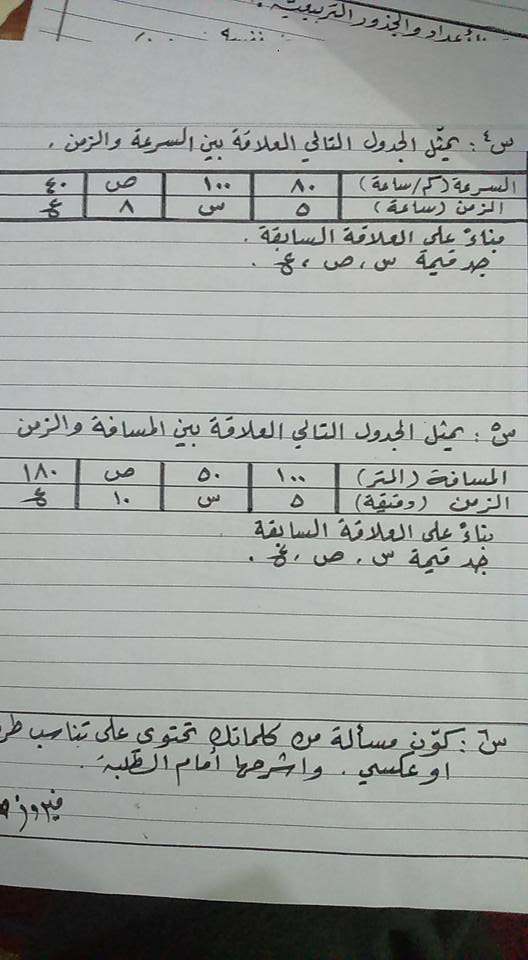 الأعداد والجذور التربيعية .
س٤ : يمثّل الجدول التالي العلاقة بين السرعة والزمن .
السرعة (كم/ساعة) ٨٠ ١٠٠ ص ٤٠
الزمن (ساعة) ٥ س ٨ ع
بناءً على العلاقة السابقة .
جد قيمة س ، ص ، ع .
س٥ : يمثل الجدول التالي العلاقة بين المسافة والزمن
المسافة (المتر) ١٠٠ ٥٠ ص ١٨٠
الزمن (دقيقة) ٥ س ١٠ ع
بناءً على العلاقة السابقة
جد قيمة س ، ص ، ع .
س٦ : كوّن مسألة من كلماتك تحتوي على تناسب
او عكسي . واشرحها أمام الطلبة .